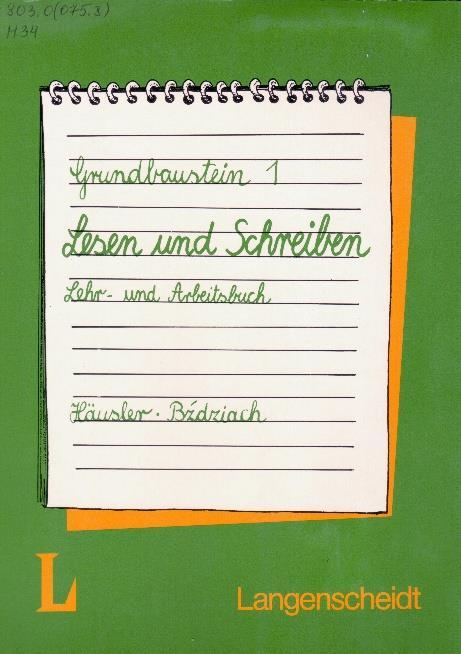 803.0(075.8)
М34
Grundbaustein 1
Lesen und Schreiben
Lehr- und Arbeitsbuch
Häusler · Bździach
L
Langenscheidt